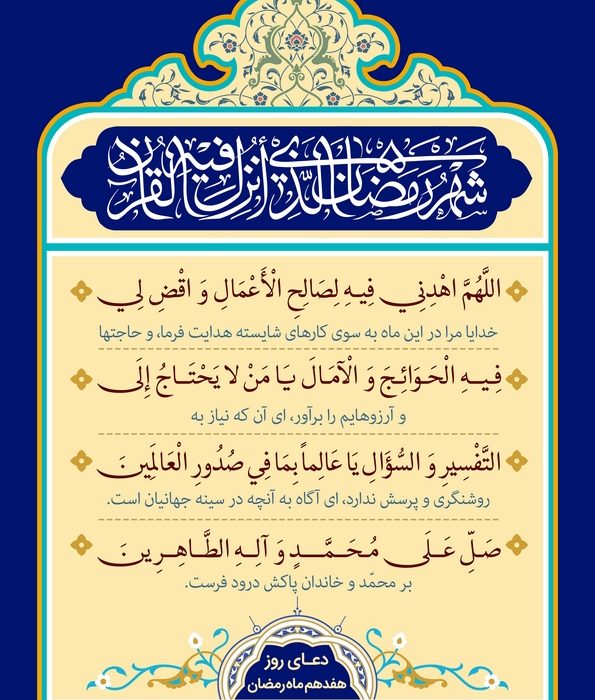 شَهْرُ رَمَضَانَ الَّذِي أُنْزِلَ فِيهِ الْقُرْآنُ
اللَّهُمَّ اهْدِنِي فِيهِ لِصَالِحِ الْأَعْمَالِ وَ اقْضِ لِي
خدایا مرا در این ماه به سوی کارهای شایسته هدایت فرما، و حاجتها
فِيهِ الْحَوَائِجَ وَ الْآمَالَ يَا مَنْ لا يَحْتَاجُ إِلَى
و آرزوهایم را برآور، ای آن که نیاز به
التَّفْسِيرِ وَ السُّؤَالِ يَا عَالِماً بِمَا فِي صُدُورِ الْعَالَمِينَ
روشنگری و پرسش ندارد، ای آگاه به آنچه در سینه جهانیان است.
صَلِّ عَلَى مُحَمَّدٍ وَ آلِهِ الطَّاهِرِينَ
بر محمّد و خاندان پاکش درود فرست.
دعای روز
هفدهم ماه رمضان